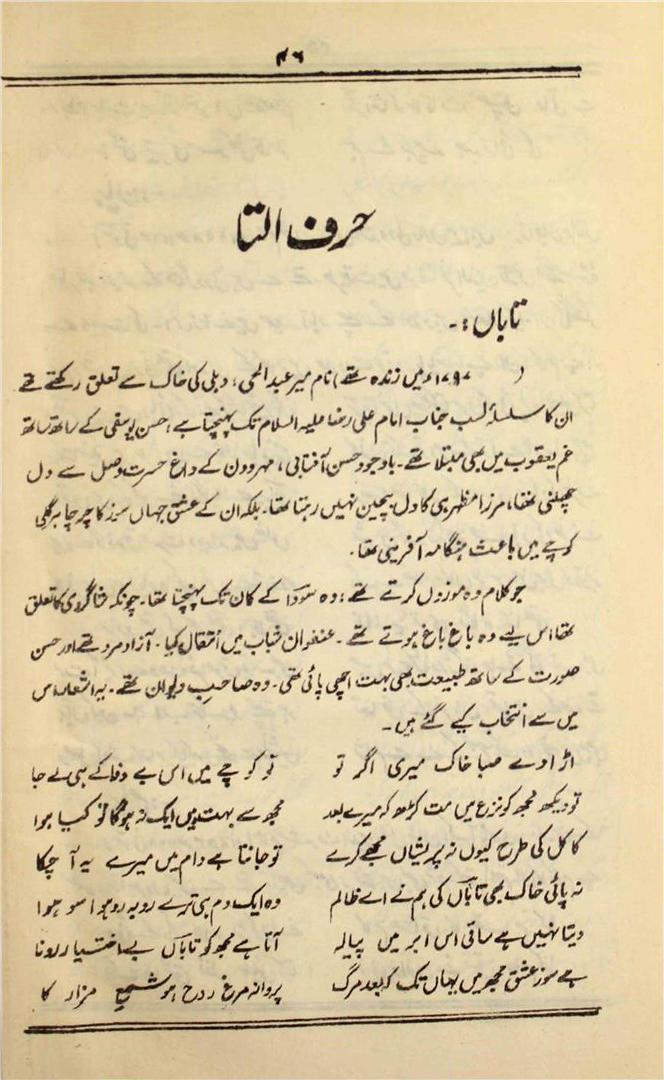 ۴۶
حرف التا
تاباں :۔
( ۱۷۹۷ء میں زندہ تھے) نام میر عبدالحی، دہلی کی خاک سے تعلق رکھتے تھے
ان کا سلسلۂ نسب جناب امام علی رضا علیہ السلام تک پہنچتا ہے، حسن یوسفی کے ساتھ ساتھ
غم یعقوب میں بھی مبتلا تھے۔ باوجود حسن آفتابی، مہرووں کے داغ حسرت وصل سے دل
چھلنی تھا، مرزا مظہر ہی کا دل بیچین نہیں رہتا تھا۔ بلکہ ان کے عشق جہاں سوز کا چرچا ہر گلی
کوچے میں باعث ہنگامہ آفرینی تھا۔
جو کلام وہ موزوں کرتے تھے؛ وہ سوداؔ کے کان تک پہنچتا تھا۔ چونکہ شاگردی کا تعلق
تھا اس لیے وہ باغ باغ ہوتے تھے۔ عنفوان شباب میں انتقال کیا۔ آزاد مرد تھے اور حسن
صورت کے ساتھ طبیعت بھی بہت اچھی پائی تھی۔ وہ صاحب دیوان تھے۔ یہ اشعار اس
میں سے انتخاب کیے گئے ہیں۔
اڑا دے صبا خاک میری اگر تو تو کوچے میں اس بے وفا کے ہی لے جا
تو دیکھ مجھ کو نزع میں مت کڑھ کہ میرے بعد مجھ سے بہت ہیں ایک نہ ہوگا تو کیا ہوا
کاکل کی طرح کیوں نہ پریشاں مجھے کرے تو جانتا ہے دام میں میرے یہ آ چکا
نہ پائی خاک بھی تاباںؔ کی ہم نے اے ظالم وہ ایک دم ہی ترے روبہ رو ہوا سو ہوا
دیتا نہیں ہے ساقی اس ابر میں پیالہ آتا ہے مجھ کو تاباںؔ بے اختیار رونا
ہے سوز عشق مجھ میں یہاں تک کہ بعد مرگ پروانہ مرغ روح ہو شمع مزار کا